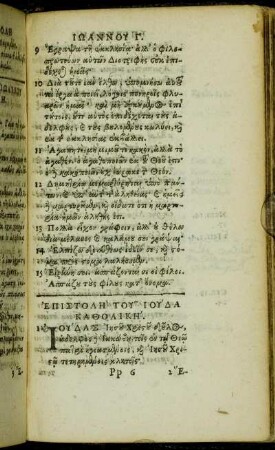 ΙΩΑΝΝΟΥ Γ.
9 Ἔγραψα τῇ ἐκκλησίᾳ· ἀλλ' ὁ φιλο-
πρωτεύων αὐτῶν Διοτρεφὴς οὐκ ἐπι-
δέχεται ἡμᾶς.
10 Διὰ τοῦτο ἐὰν ἔλθω, ὑπομνήσω αὐτοῦ
τὰ ἔργα ἃ ποιεῖ, λόγοις πονηροῖς φλυα-
ρῶν ἡμᾶς· καὶ μὴ ἀρκούμενος ἐπὶ
τούτοις, οὔτε αὐτὸς ἐπιδέχεται τοὺς ἀ-
δελφούς, καὶ τοὺς βουλομένους κωλύει, καὶ
ἐκ τῆς ἐκκλησίας ἐκβάλλει.
11 Ἀγαπητὲ, μὴ μιμοῦ τὸ κακὸν, ἀλλὰ τὸ
ἀγαθόν. ὁ ἀγαθοποιῶν ἐκ τοῦ Θεοῦ ἐστιν·
ὁ δὲ κακοποιῶν οὐχ ἑώρακε τὸν Θεόν.
12 Δημητρίῳ μεμαρτύρηται ὑπὸ πάν-
των, καὶ ὑπ' αὐτῆς τῆς ἀληθείας· καὶ
ἡμεῖς δὲ μαρτυροῦμεν, καὶ οἴδατε ὅτι ἡ μαρτυ-
ρία ἡμῶν ἀληθής ἐστι.
13 Πολλὰ εἶχον γράφειν, ἀλλ' οὐ θέλω
διὰ μέλανος καὶ καλάμου σοι γράψαι·
14 Ἐλπίζω δὲ εὐθέως ἰδεῖν σε, καὶ
στόμα πρὸς στόμα λαλήσομεν.
15 Εἰρήνη σοι. ἀσπάζονταί σε οἱ φίλοι.
Ἀσπάζου τοὺς φίλους κατ' ὄνομα.
ΕΠΙΣΤΟΛΗ ΤΟΥ ΙΟΥΔΑ
ΚΑΘΟΛΙΚΗ.
1 ΙΟΥΔΑΣ Ἰησοῦ Χριστοῦ δοῦλος,
ἀδελφὸς δὲ Ἰακώβου, τοῖς ἐν Θεῷ
πατρὶ ἡγιασμένοις, καὶ Ἰησοῦ Χρι-
στῷ τετηρημένοις κλητοῖς.
Pp 6
2 Ἔ-